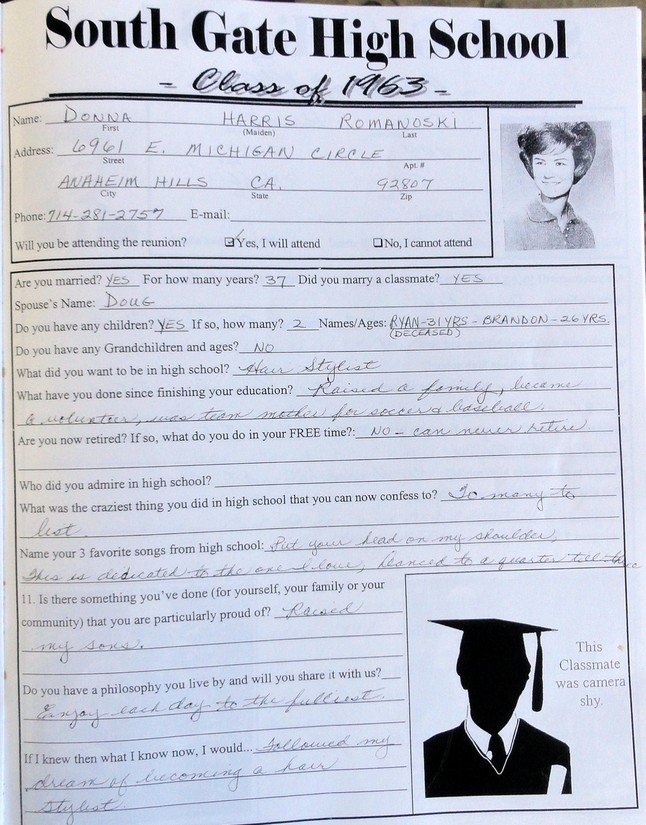 South Gate High School
- Class of 1963 -
Name: DONNA HARRIS ROMANOSKI
First (Maiden) Last
Address: 6961 E. MICHIGAN CIRCLE
Street Apt. #
ANAHEIM HILLS CA. 92807
City State Zip
Phone: 714-281-2757 E-mail:
Will you be attending the reunion? Yes, I will attend No, I cannot attend
Are you married? YES For how many years? 37 Did you marry a classmate? YES
Spouse's Name: DOUG
Do you have any children? YES If so, how many? 2 Names/Ages: RYAN-31 YRS - BRANDON-26 YRS.
(DECEASED)
Do you have any Grandchildren and ages? NO
What did you want to be in high school? Hair Stylist
What have you done since finishing your education? Raised a family, became
a volunteer, was team mother for soccer & baseball.
Are you now retired? If so, what do you do in your FREE time?: NO - can never retire
Who did you admire in high school?
What was the craziest thing you did in high school that you can now confess to? To many to
list.
Name your 3 favorite songs from high school: Put your head on my shoulder,
This is dedicated to the one I love, Danced to a quarter till three
11. Is there something you've done (for yourself, your family or your
community) that you are particularly proud of? Raised
my sons.
Do you have a philosophy you live by and will you share it with us?
Enjoy each day to the fulliest.
If I knew then what I know now, I would... followed my
dream of becoming a hair
stylist
This
Classmate
was camera
shy.